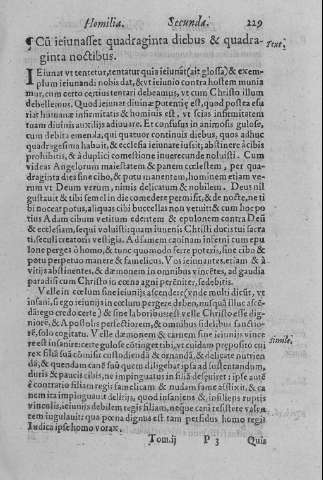 Homilia. Secunda. 229
¶ Cũ ieiunasset quadraginta diebus & quadra- Text⁹
ginta noctibus.
IEiunat vt tentetur, tentatur quia ieiunãt (ait glossa) & exem-
plum ieiunandi nobis dat, & vt vino ieiunio contra hostem munia
mur, cum certo certius tentari debeamus, vt cum Christo illum
debellemus. Quod ieiunat diuinæ potentię est, quod postea esu
riat humanæ infirmitatis & hominis est, vt scias infirmitatem
tuam diuinis auxilijs adiuuare. Et confusus in animo sis gulose,
cum debita emenda, qui quatuor continuis diebus, quos adhuc
quadragesima habuit, & ecclesia ieiunare iussit, abstinere a cibis
prohibitis, & à duplici comestione inuerecunde noluisti. Cum
videas Angelorum maiestatem & panem cęlestem, per qua-
draginta dies sine cibo, & potu manentem, hominem etiam ve-
rum vt Deum verum, nimis delicatum & nobilem. Deus nil
gustauit & tibi semel in die comedere permisit, & de nocte, ne ti
bi noceat potus, aliquas cibi buccellas non vetuit: & cum hoc po
tius Adam cibum vetitum edentem & epulonem contra Deũ
& ecclesiam, sequi voluisti: quam ieiunus Christi ductus tui sacra
ti, seculi creatoris vestigia. Adsis modo
Ione perget à homo, & tunc quomodo ferre poteris, sine cibo &
potu perpetuo manere & famelicus. Vos ieiunantes, etiam & à
vitijs abstinentes, & dæmonem in omnibus vincẽtes, ad gaudia
paradisi cum Christo in cœna agni perẽniter, sedebitis.
Valle in cœlum sine ieiunijs ascendere (vnde multi dicũt, vt
insani, si ego ieiunijs in cœlum pergere deben, nunquã illuc ascẽ-
dã: ergo credo certe) & sine laboribus: est velle Christo esse dig-
niorẽ, & Apostolis perfectiorem, & omnibus fidelibus sanctio-
rẽ, solo cogitatu. Velle dæmonem & carnem sine ieiunijs vince
re est insanire: certe gulose cõtinget tibi, vt cuidam preposito cui simile,
rex filiã suã cõmisit custodiendã & ornandã, & delicate nutrien
dã, & quendam canẽ suũ quem diligebat ipsa ad sustentandum,
duris & paucis cibis, ne impinguatus in filiã desęuiret: ipse autẽ
è contratio filiam regis famelicam & nudam fame afflixit, & ca
nem ita impinguauit delitijs, quod insaniens & insiliens ruptis
vinculis, ieiunijs debilem regis filiam, neque cani resistere valen
tem iugulauit: qua pœna dignus est tam perfidus homo regis
Iudica ipse homo vorax.
Tom.ij P 3 Quia